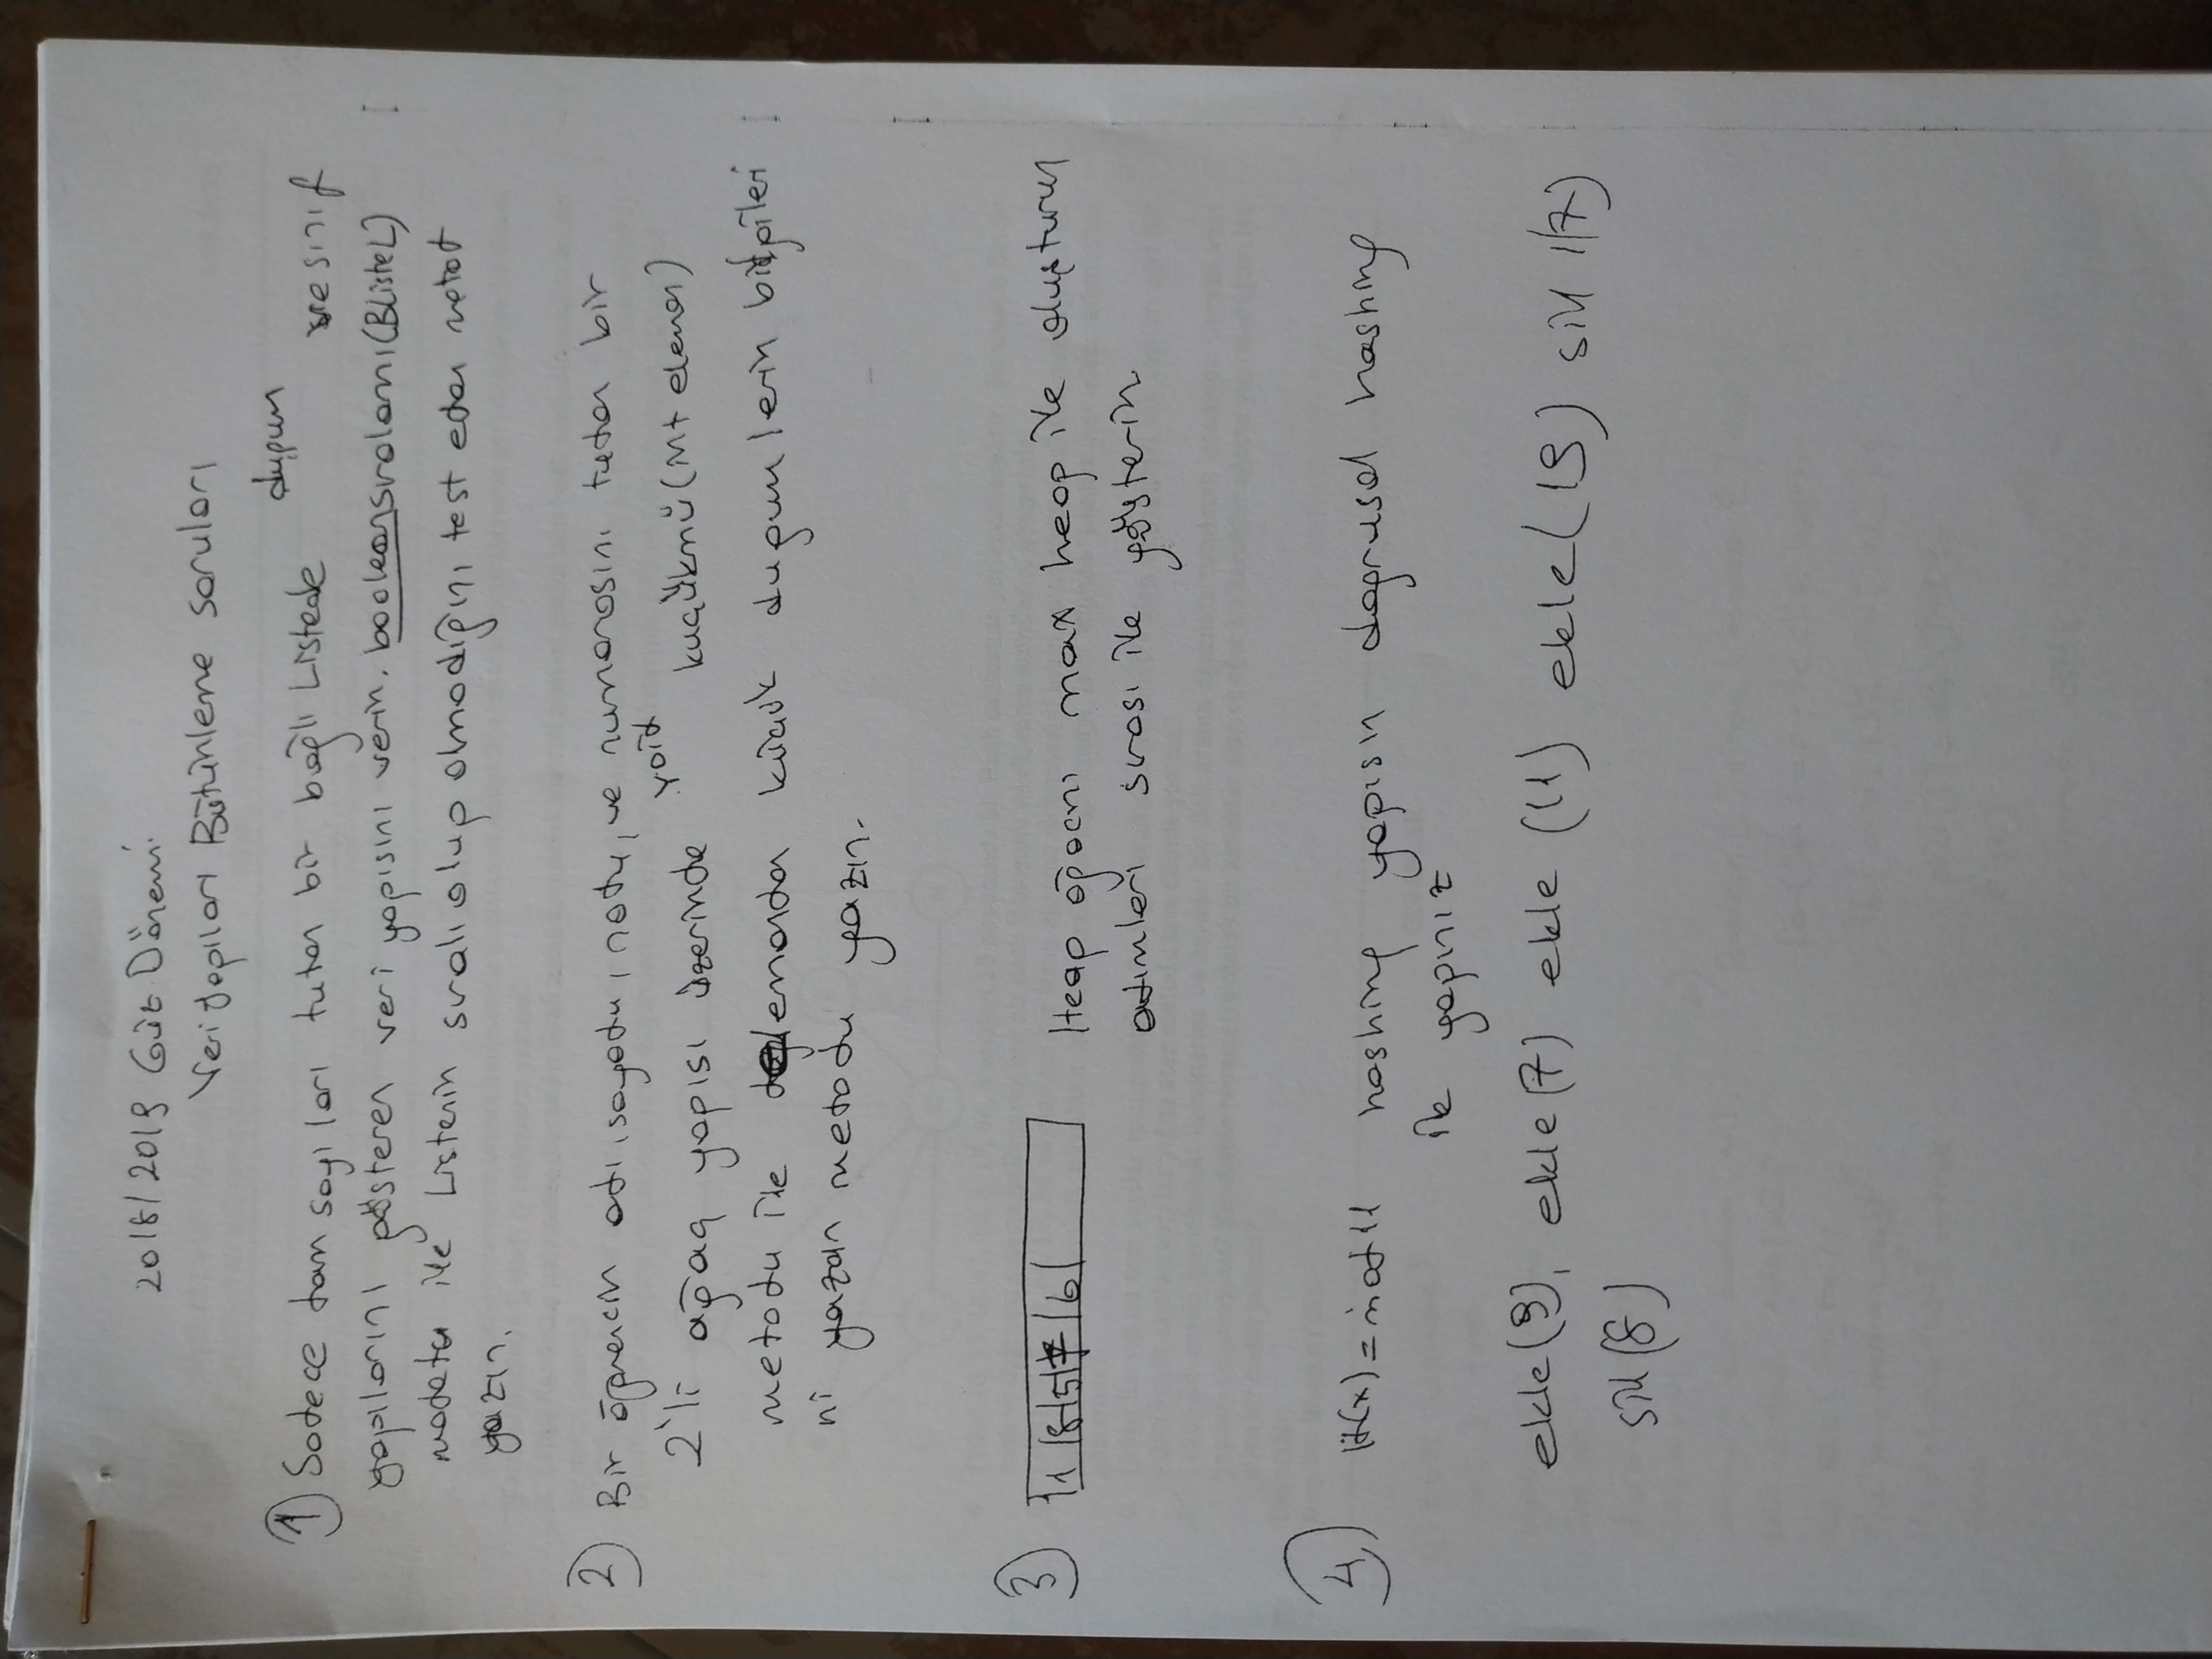 2018/2019 Güz Dönemi
Veri Yapıları Bütünleme soruları
1) Sadece tam sayıları tutan bir bağlı Listede dugum ve sınıf
yapılarını gösteren veri yapısını verin. boolean sıralamı(BListe L)
metotu ile Listenin sıralı olup olmadığını test eden metot
yazın.
2) Bir öğrencin adı, soyadu, notu, ve numarasını tutan bir
2'li ağaç yapısı üzerinde void kuçükmü(int eleman)
metodu ile elemandan küçük dugumlerin bilgileri
ni yazan metodu yazın.
3) 1/8/5/7/6/ Heap ağacnı max heap ile oluşturun
adımleri sırası ile gösterin
4) H(x)=mod 11 hashing yapısın dogrusal hashing
ile yapınız
ekle(9), ekle(7) ekle (11) ekle(19) sil (7)
sil(8)